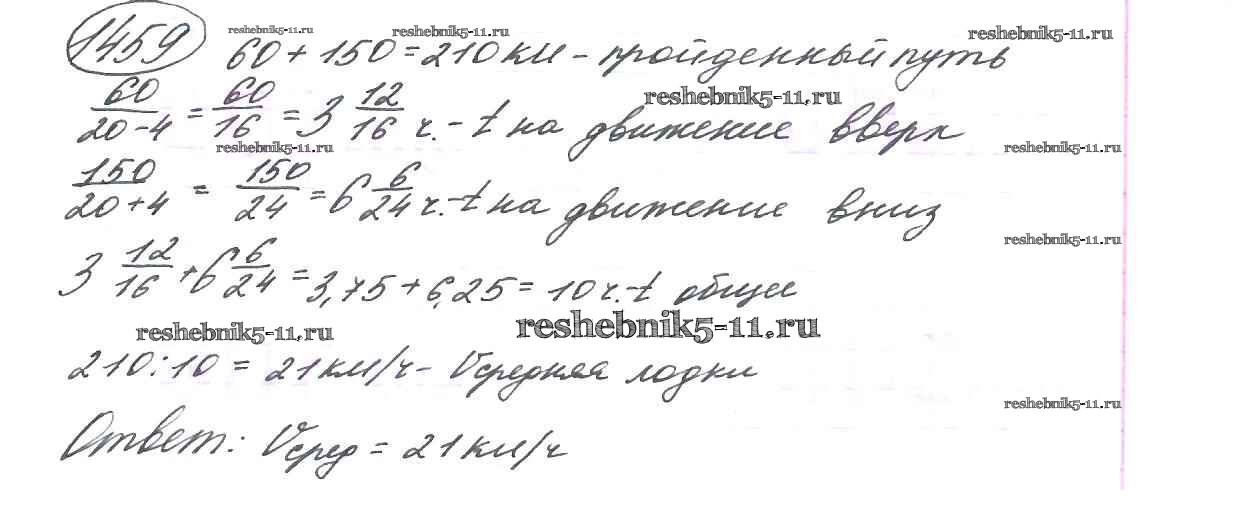 reshebnik5-11.ru reshebnik5-11.ru reshebnik5-11.ru
1459 60 + 150 = 210 км - пройденный путь
reshebnik5-11.ru
60/(20-4) = 60/16 = 3 12/16 ч. - t на движение вверх
reshebnik5-11.ru reshebnik5-11.ru
150/(20+4) = 150/24 = 6 6/24 ч. - t на движение вниз
reshebnik5-11.ru
3 12/16 + 6 6/24 = 3,75 + 6,25 = 10 ч. - t общее
reshebnik5-11.ru reshebnik5-11.ru
210:10 = 21 км/ч - Vсредняя лодки
reshebnik5-11.ru
Ответ: Vсред = 21 км/ч